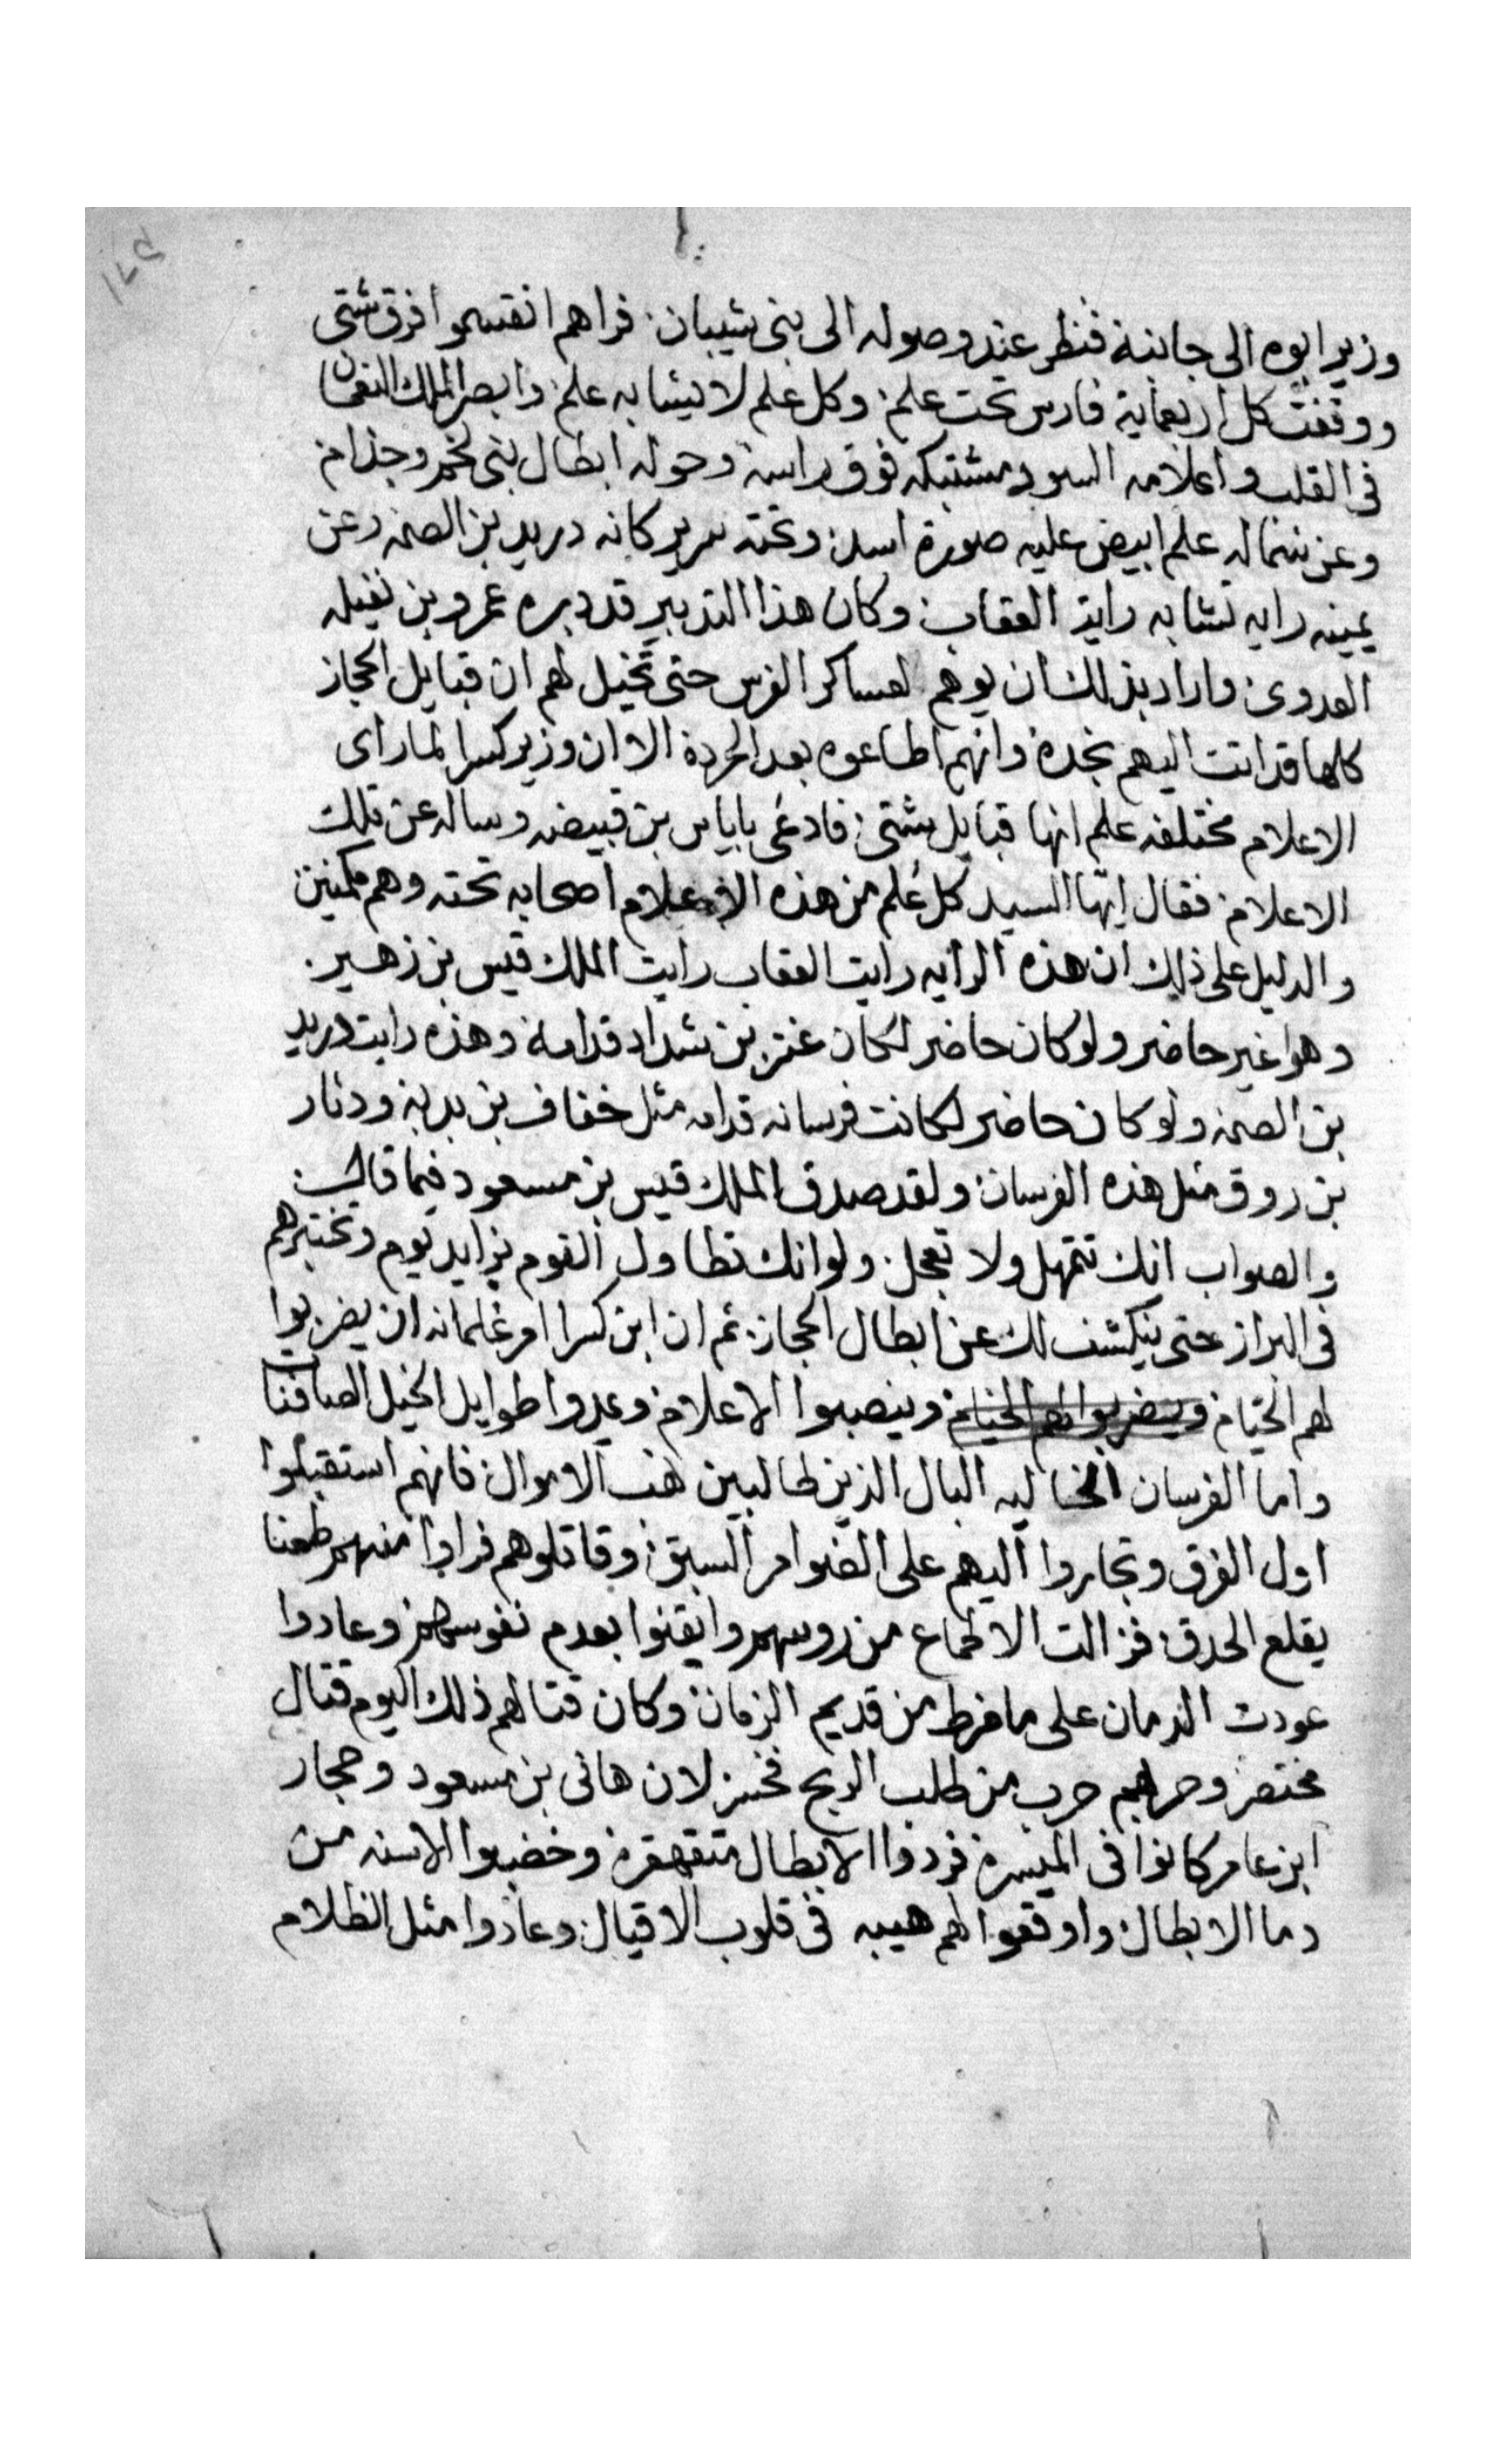 وزير ابوه الى جانبه فنظر عند وصوله الى بنى شيبان فراهم انقسموا فرق شتى
ووقفت كل اربعماية فارس تحت علم وكل علم لا يشابه علم وابصر الملك النعمان
فى القلب واعلامه السود مشتبكه فوق راسه وحوله ابطال بنى لخم وجذام
وعن شماله علم ابيض عليه صورة اسد وتحته سرير كانه دريد بن الصمه وعن
يمينه رايه تشابه راية العقاب وكان هذا التدبير قد دبره عمرو بن نفيله
العدوى واراد بذلك ان يوهم لعساكر الفرس حتى تخيل لهم ان قبايل الحجاز
كلها قد اتت اليهم نجدة وانهم اطاعوه بعد الحرده الا ان وزير كسرا لما راى
الاعلام مختلفه علم انها قبايل شتى فادعى باياس بن قبيضه وساله عن تلك
الاعلام فقال ايها السيد كل علم من هذه الاعلام اصحابه تحته وهم مكنين
والدليل على ذلك ان هذه الرايه رايت العقاب رايت الملك قيس بن زهير
وهوا غير حاضر ولو كان حاضر لكان عنتر بن شداد قدامه وهذه رايت دريد
بن الصمه ولو كان حاضر لكانت فرسانه قدامه مثل خفاف بن بدبه ودثار
بن روق مثل هذه الفرسان ولقد صدق الملك قيس بن مسعود فيما قال
والصواب انك تتمهل ولا تعجل ولو انك تطاول القوم بزايد يوم وتختبرهم
فى البراز حتى ينكشف لك عن ابطال الحجاز ثم ان ابن كسرا امر غلمانه ان يضربوا
لهم الخيام ويضربوا لهم الخيام وينصبوا الاعلام وعدوا طوايل الخيل الصافنا
واما الفرسان الخاليه البال الذين طالبين نهب الاموال فانهم استقبلوا
اول الفرق وتجاروا اليهم على الضوامر السبق وقاتلوهم فراوا منهم طعنا
يقلع الحدق فزالت الاطماع من روسهم وايقنوا بعدم نفوسهم وعادوا
عودت الندمان على ما فرط من قديم الزمان وكان قتالهم ذلك اليوم قتال
مختصر وحربهم حرب من طلب الربح فخسر لان هانى بن مسعود وحجار
ابن عامر كانوا فى الميسره فردوا الابطال متقهقره وخضبوا الاسنه من
دما الابطال واوقعوا لهم هيبه فى قلوب الاقيال وعادوا مثل الظلام